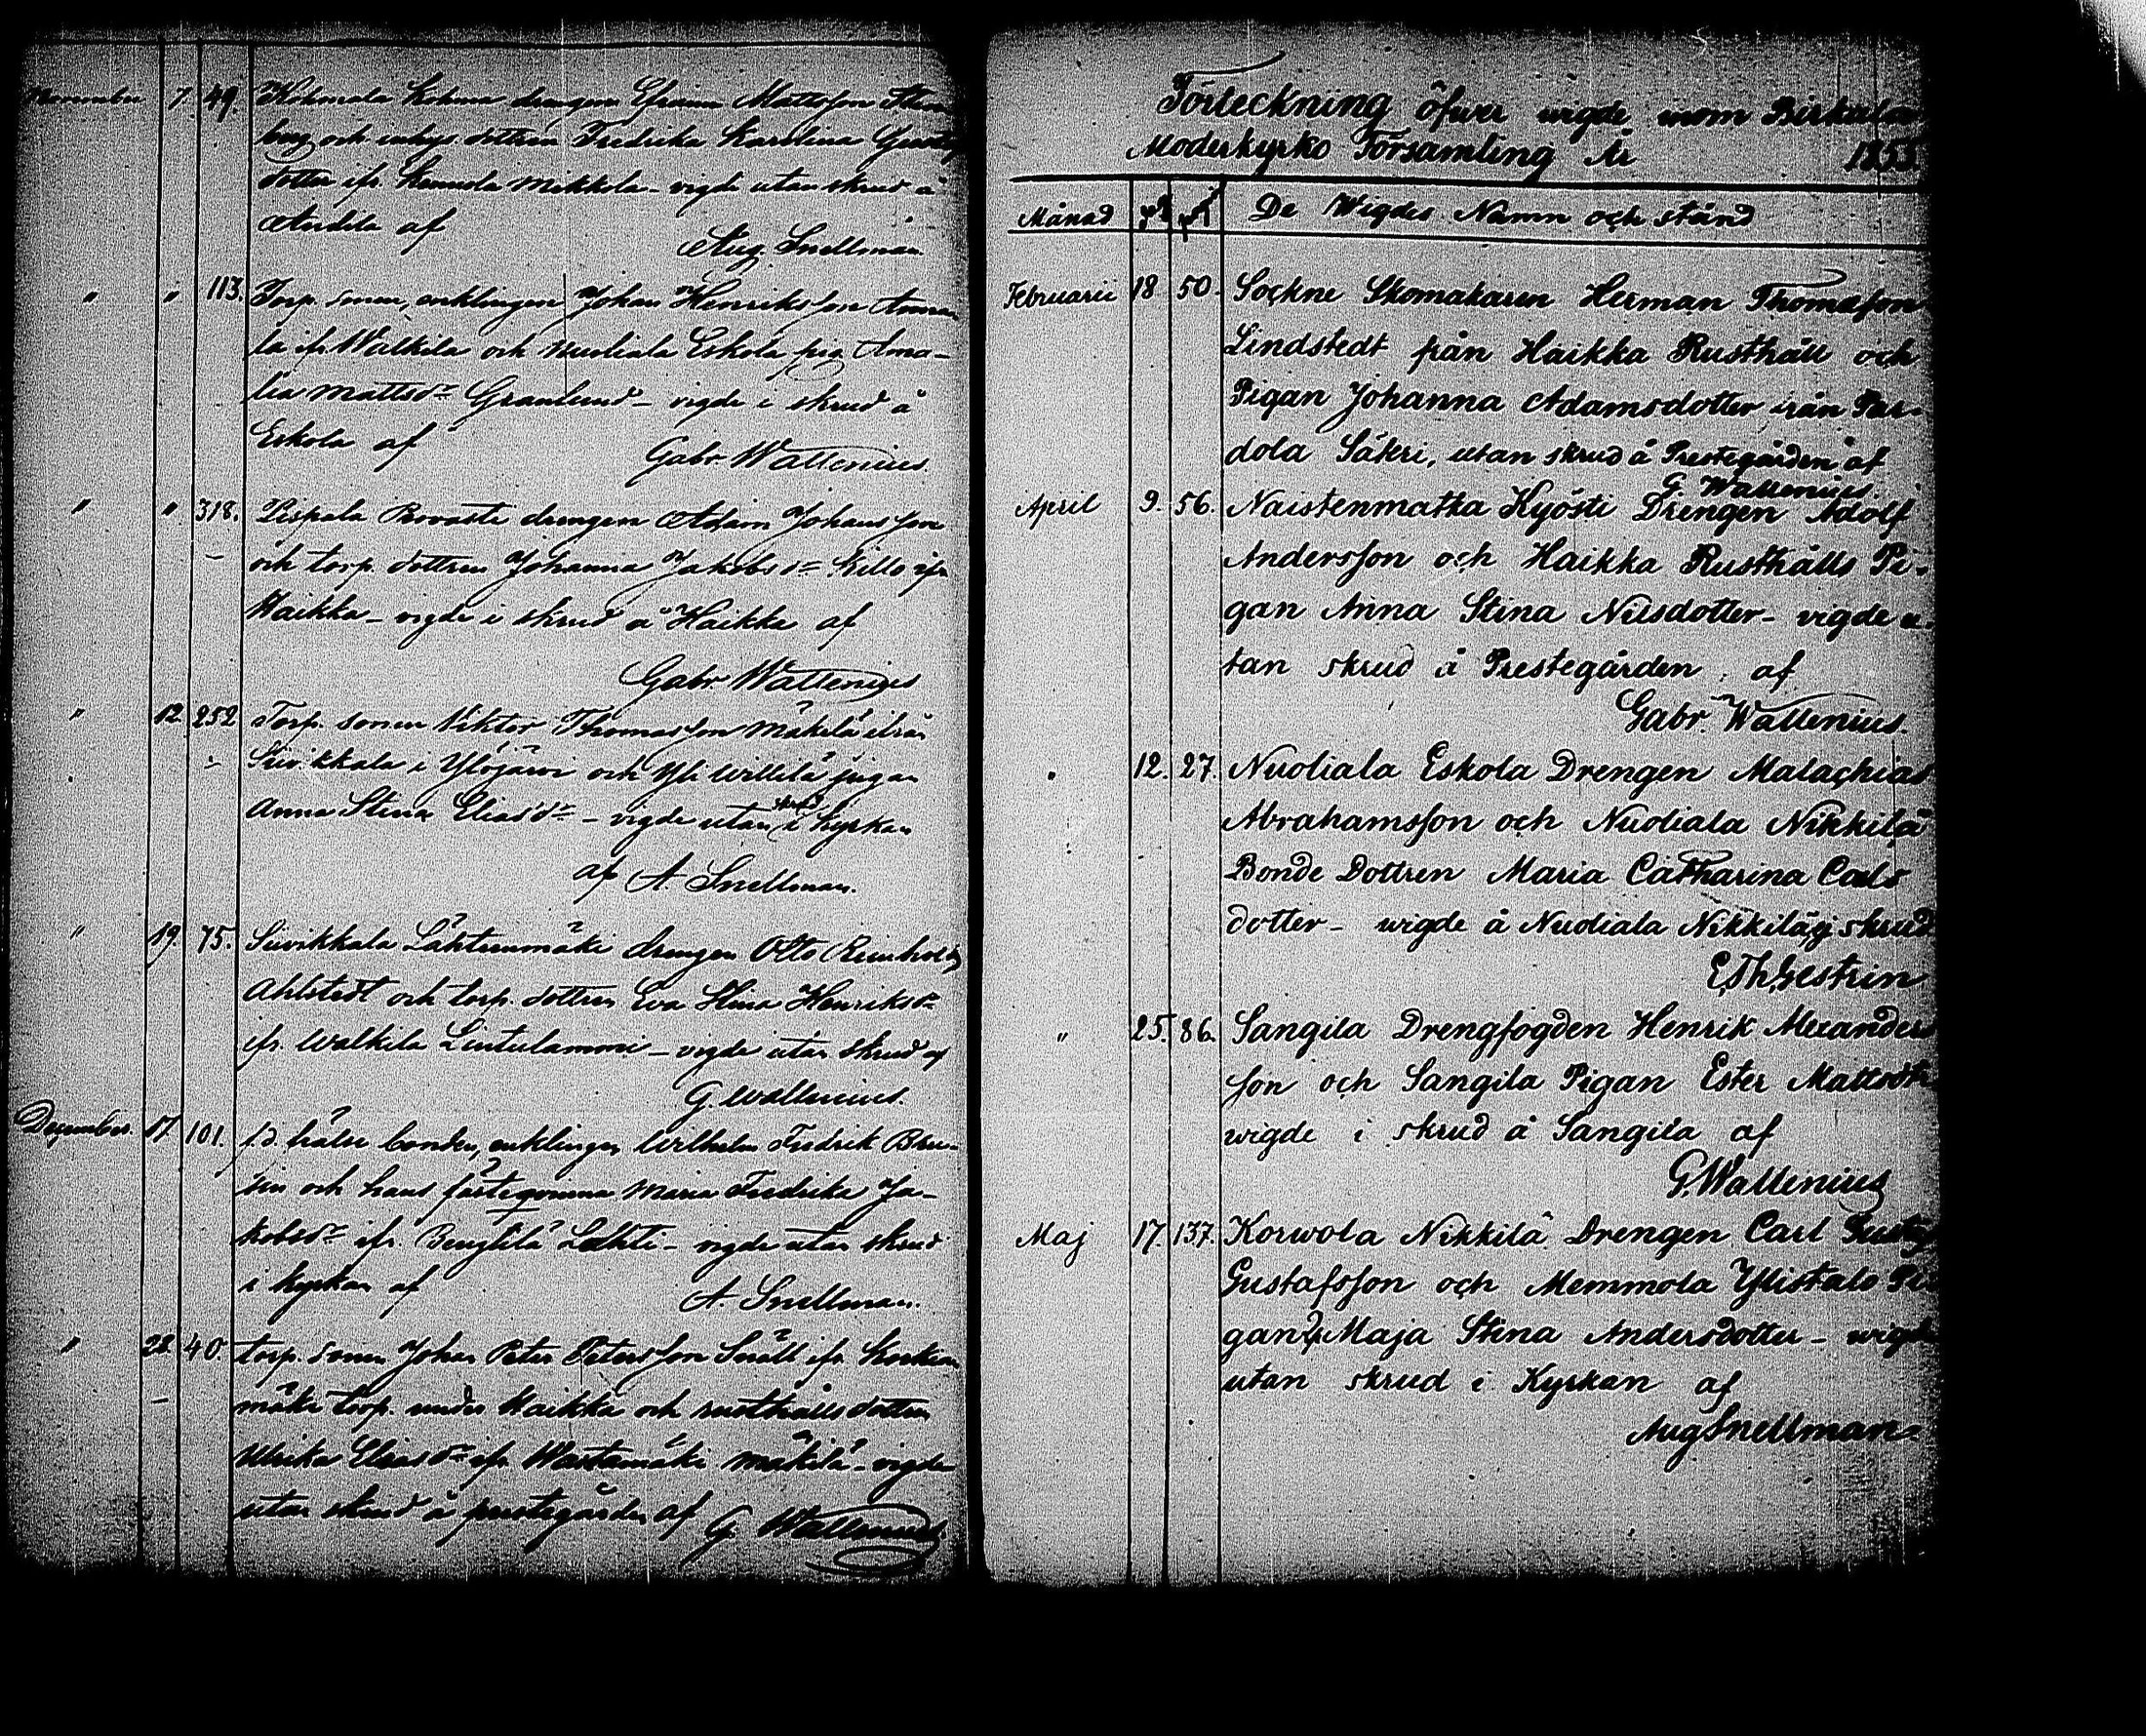 November 7. 49. Kolmala Kolmu drengen Efraim Mattsson Sten
berg och inhys. dottren Fredrika Karolina Gustafs
dotter ifr. Mikkola - vigde utan skrud å
Anttila af
Aug. Snellman.
" " 113. Torp. sonen, enklingen Johan Henriksson Anna
la ifr. Walkila och Nuoliala Eskola pig. Ama-
lia Mattsdr Granlund - vigde i skrud å
Eskola af
Gabr. Wallenius.
" " 318. Pispala Provasti drengen Adam Johansson
och torp. dottren Johanna Jakobsdr Killo ifr
Haikka - vigde i skrud å Haikka af
Gabr. Wallenius
" 12. 252 Torp. sonen Viktor Thomasson Mäkelä ifrån
Siivikkala i Ylöjärvi och Yli Willilä pigan
Anna Stina Eliasdr - vigde utan skrud i Kyrkan
af A. Snellman.
" 19. 75. Siivikkala Lähteenmäki drengen Otto Reinhold
Ahlstedt och torp. dottren Eva Stina Henriksdr
ifr. Walkila Lintulammi - vigde utan skrud af
G. Wallenius.
December. 17. 101. f.d. frälse bonden, enklingen Wilhelm Fredrik
och hans fästeqvinna Maria Fredrika Ja-
kobsdr ifr. Lahti - vigde utan skrud
i kyrkan af
A. Snellman.
" 28 40. torp. sonen Johan Peter Petersson Snäll ifr.
mäki torp. under Haikka och rusthålls dottren
Ulrika Eliasdr ifr. Wastamäki Mäkilä - vigde
utan skrud å prestegården af G. Wallenius.
Förteckning öfver wigde inom Birkala
Moderkyrko Församling År 1855
Månad De Wigdes Namn och stånd
Februarii 18 50. Sockne Skomakaren Herman Thomasson
Lindstedt från Haikka Rusthåll och
Pigan Johanna Adamsdotter från Par-
dola Säteri, utan skrud å Prestegården af
G. Wallenius.
April 9. 56. Naistenmatka Kyösti Drengen Adolf
Andersson och Haikka Rusthålls Pi-
gan Anna Stina Nilsdotter - vigde u-
tan skrud å Prestegården af
Gabr. Wallenius.
" 12. 27. Nuoliala Eskola Drengen Malachias
Abrahamsson och Nuoliala Nikkilä
Bonde Dottren Maria Catharina Carls
dotter - wigde å Nuoliala Nikkilä, i skrud
E. Th. Gestrin
" 25. 86. Sangila Drengfogden Henrik Alexanders
son och Sangila Pigan Ester Mattsdtr
wigde i skrud å Sangila af
G. Wallenius
Maj 17. 137. Korwola Nikkilä Drengen Carl Gustaf
Gustafsson och Memmola Ylistalo Pi
gan Maja Stina Andersdotter - wigde
utan skrud i Kyrkan af
Aug Snellman